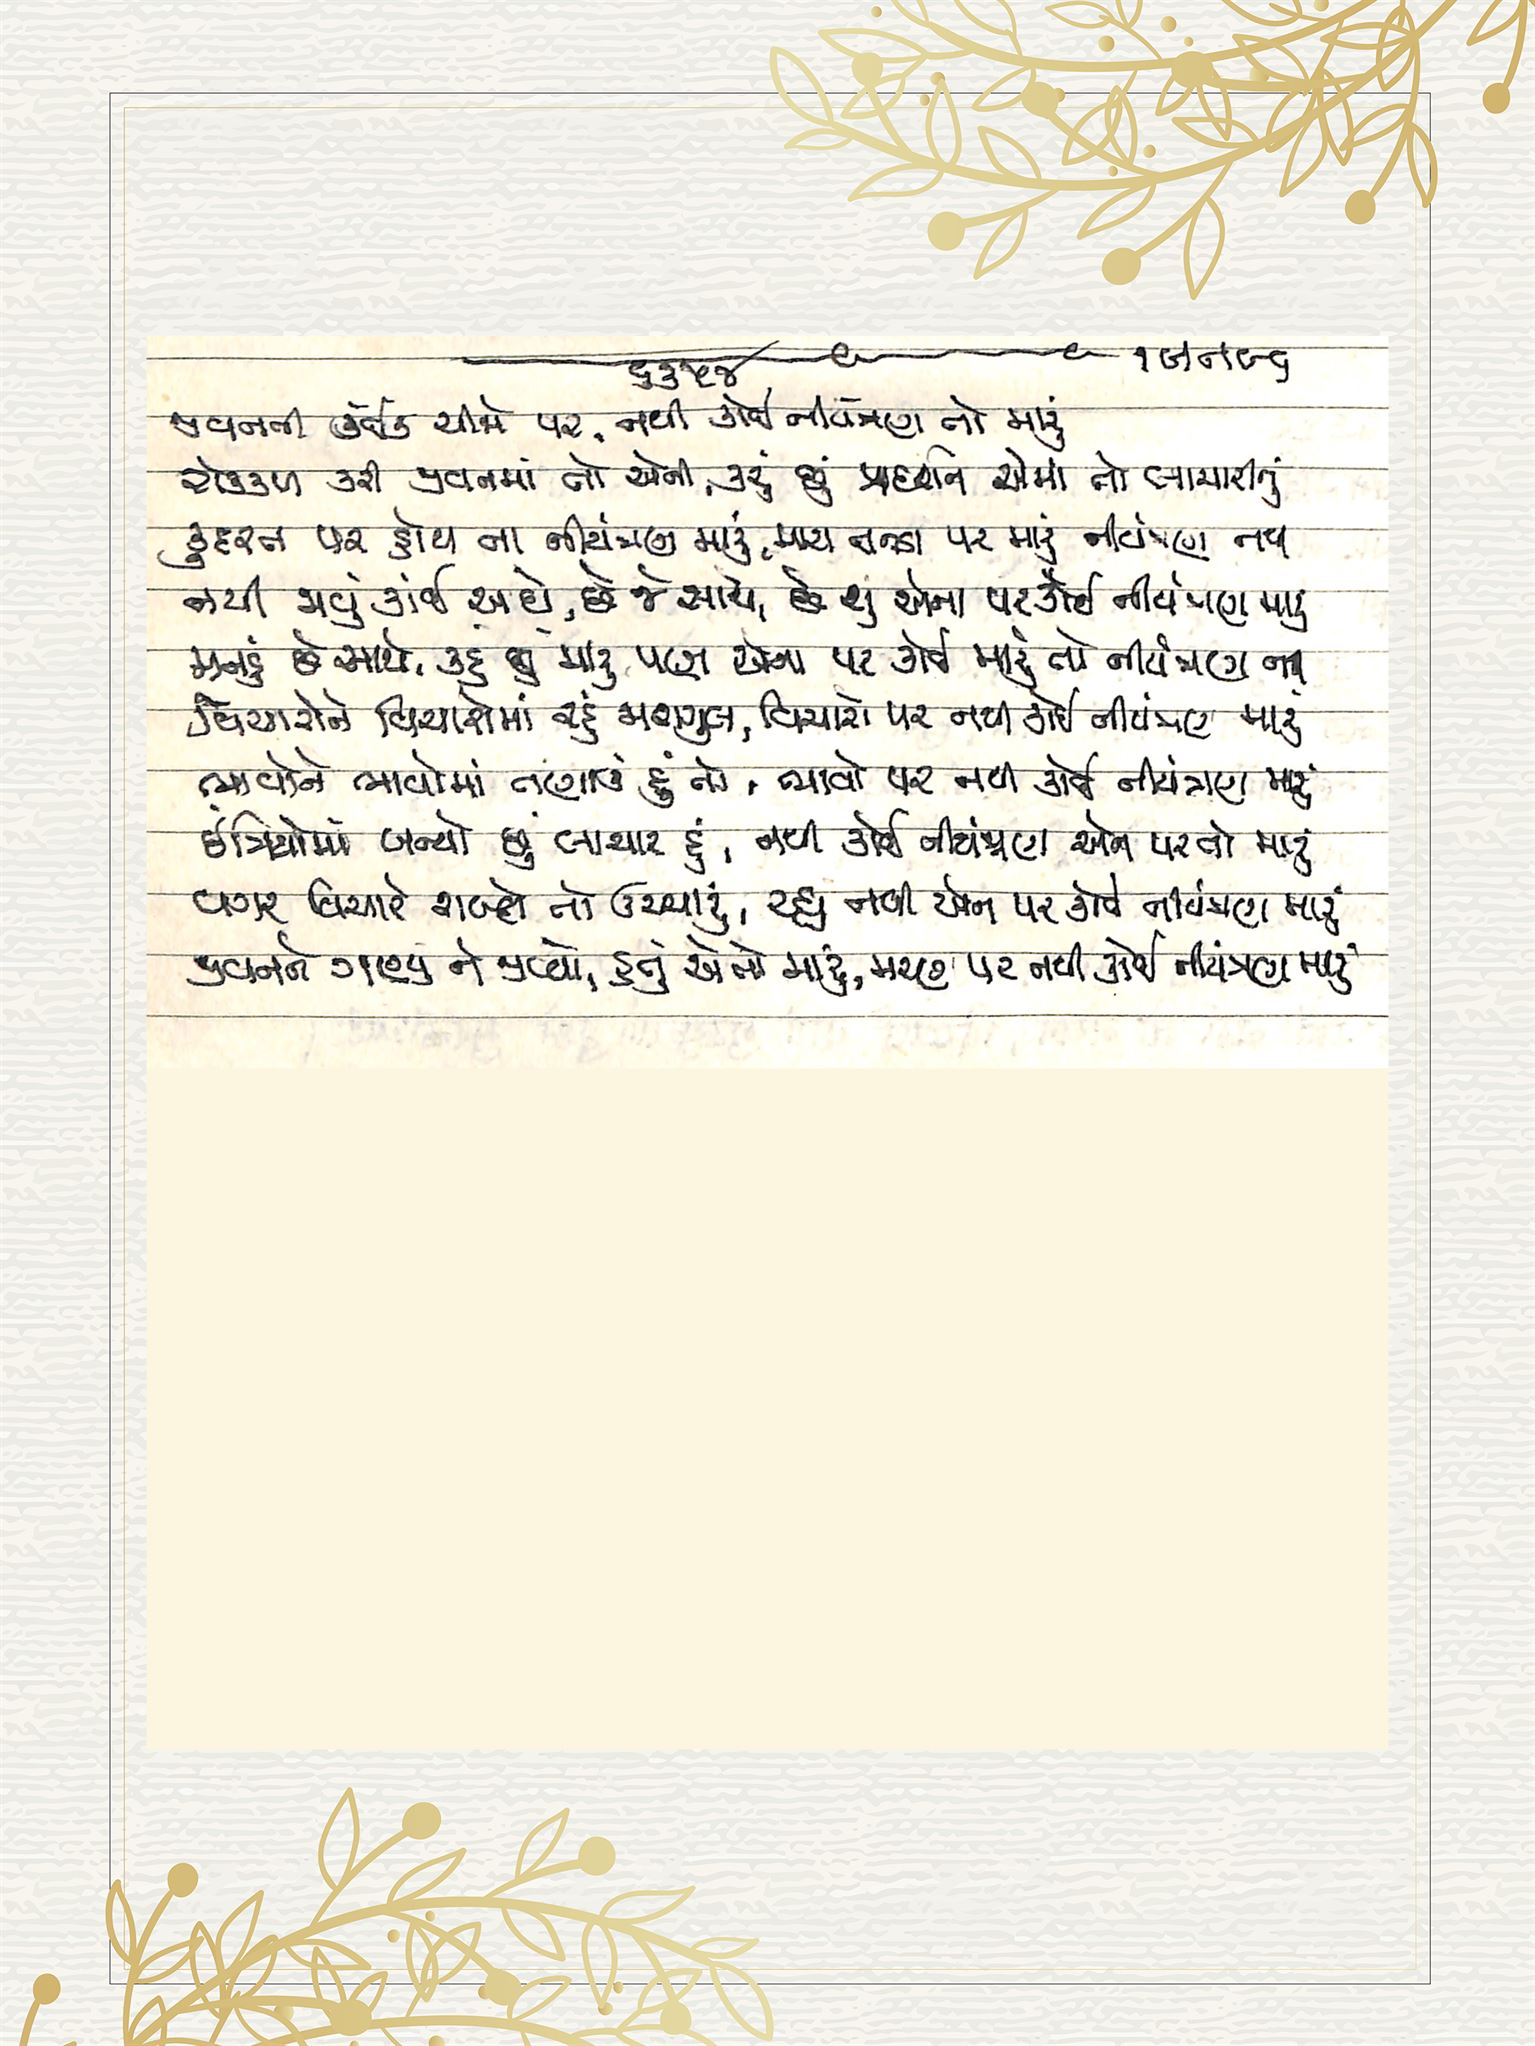 ૬૩૫૪
જીવનની કંઈક ચીજો પર, નથી કોઈ નીયંત્રણ તો મારું
રોકકળ કરી જીવનમાં તો એની, કરું છું પ્રદર્શન એમાં તો લાચારીનું
કુદરત પર હોય ના નીયંત્રણ મારું, મારા તનડા પર મારું નીયંત્રણ નથી
નથી આવ્યું કાંઈ સાથે, છે જે સાથે, છે શું એના પર કોઈ નીયંત્રણ મારું
મનડું છે સાથે, કહું છું મારું પણ એના પર કોઈ મારું તો નીયંત્રણ નથી
વિચારોને વિચારોમાં રહું મશગુલ, વિચારો પર નથી કોઈ નીયંત્રણ મારું
ભાવોને ભાવોમાં તણાઉં હું તો, ભાવો પર નથી કોઈ નીયંત્રણ મારું
ઇંદ્રિયોમાં બન્યો છું લાચાર હું, નથી કોઈ નીયંત્રણ એના પર તો મારું
વગર વિચારે શબ્દો તો ઉચ્ચારું, રહ્યું નથી એના પર કોઈ નીયંત્રણ મારું
જીવનને જીવ્યો, હતું એ તો મારું, મરણ પર નથી કોઈ નીયંત્રણ મારું